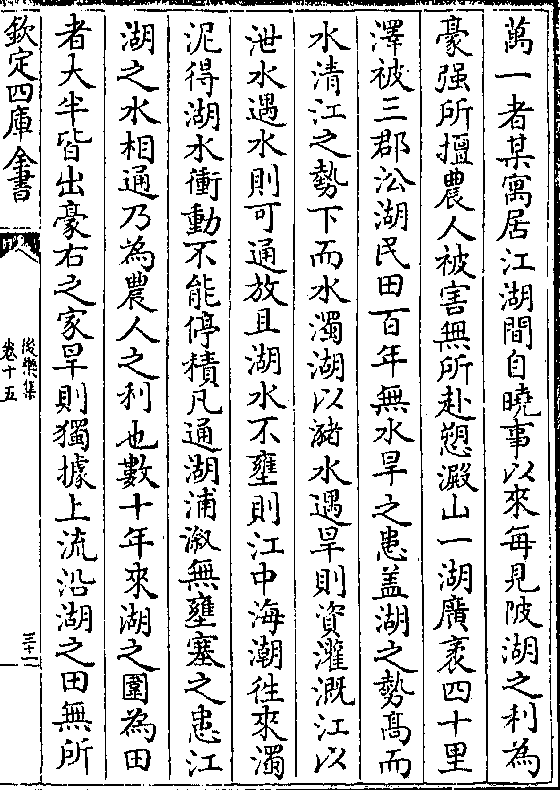 萬一者某寓居江湖間自曉事以來每見陂湖之利為
豪强所擅農人被害無所赴愬澱山一湖廣袤四十里
澤被三郡㳂湖民田百年無水旱之患盖湖之勢髙而
水清江之勢下而水濁湖以瀦水遇旱則資灌溉江以
泄水遇水則可通放且湖水不壅則江中海潮徃來濁
泥得湖水衝動不能停積凡通湖浦溆無壅塞之患江
湖之水相通乃為農人之利也數十年來湖之圍為田
者大半皆出豪右之家旱則獨據上流沿湖之田無所
欽定四庫全書
後樂集
卷十五
三十一